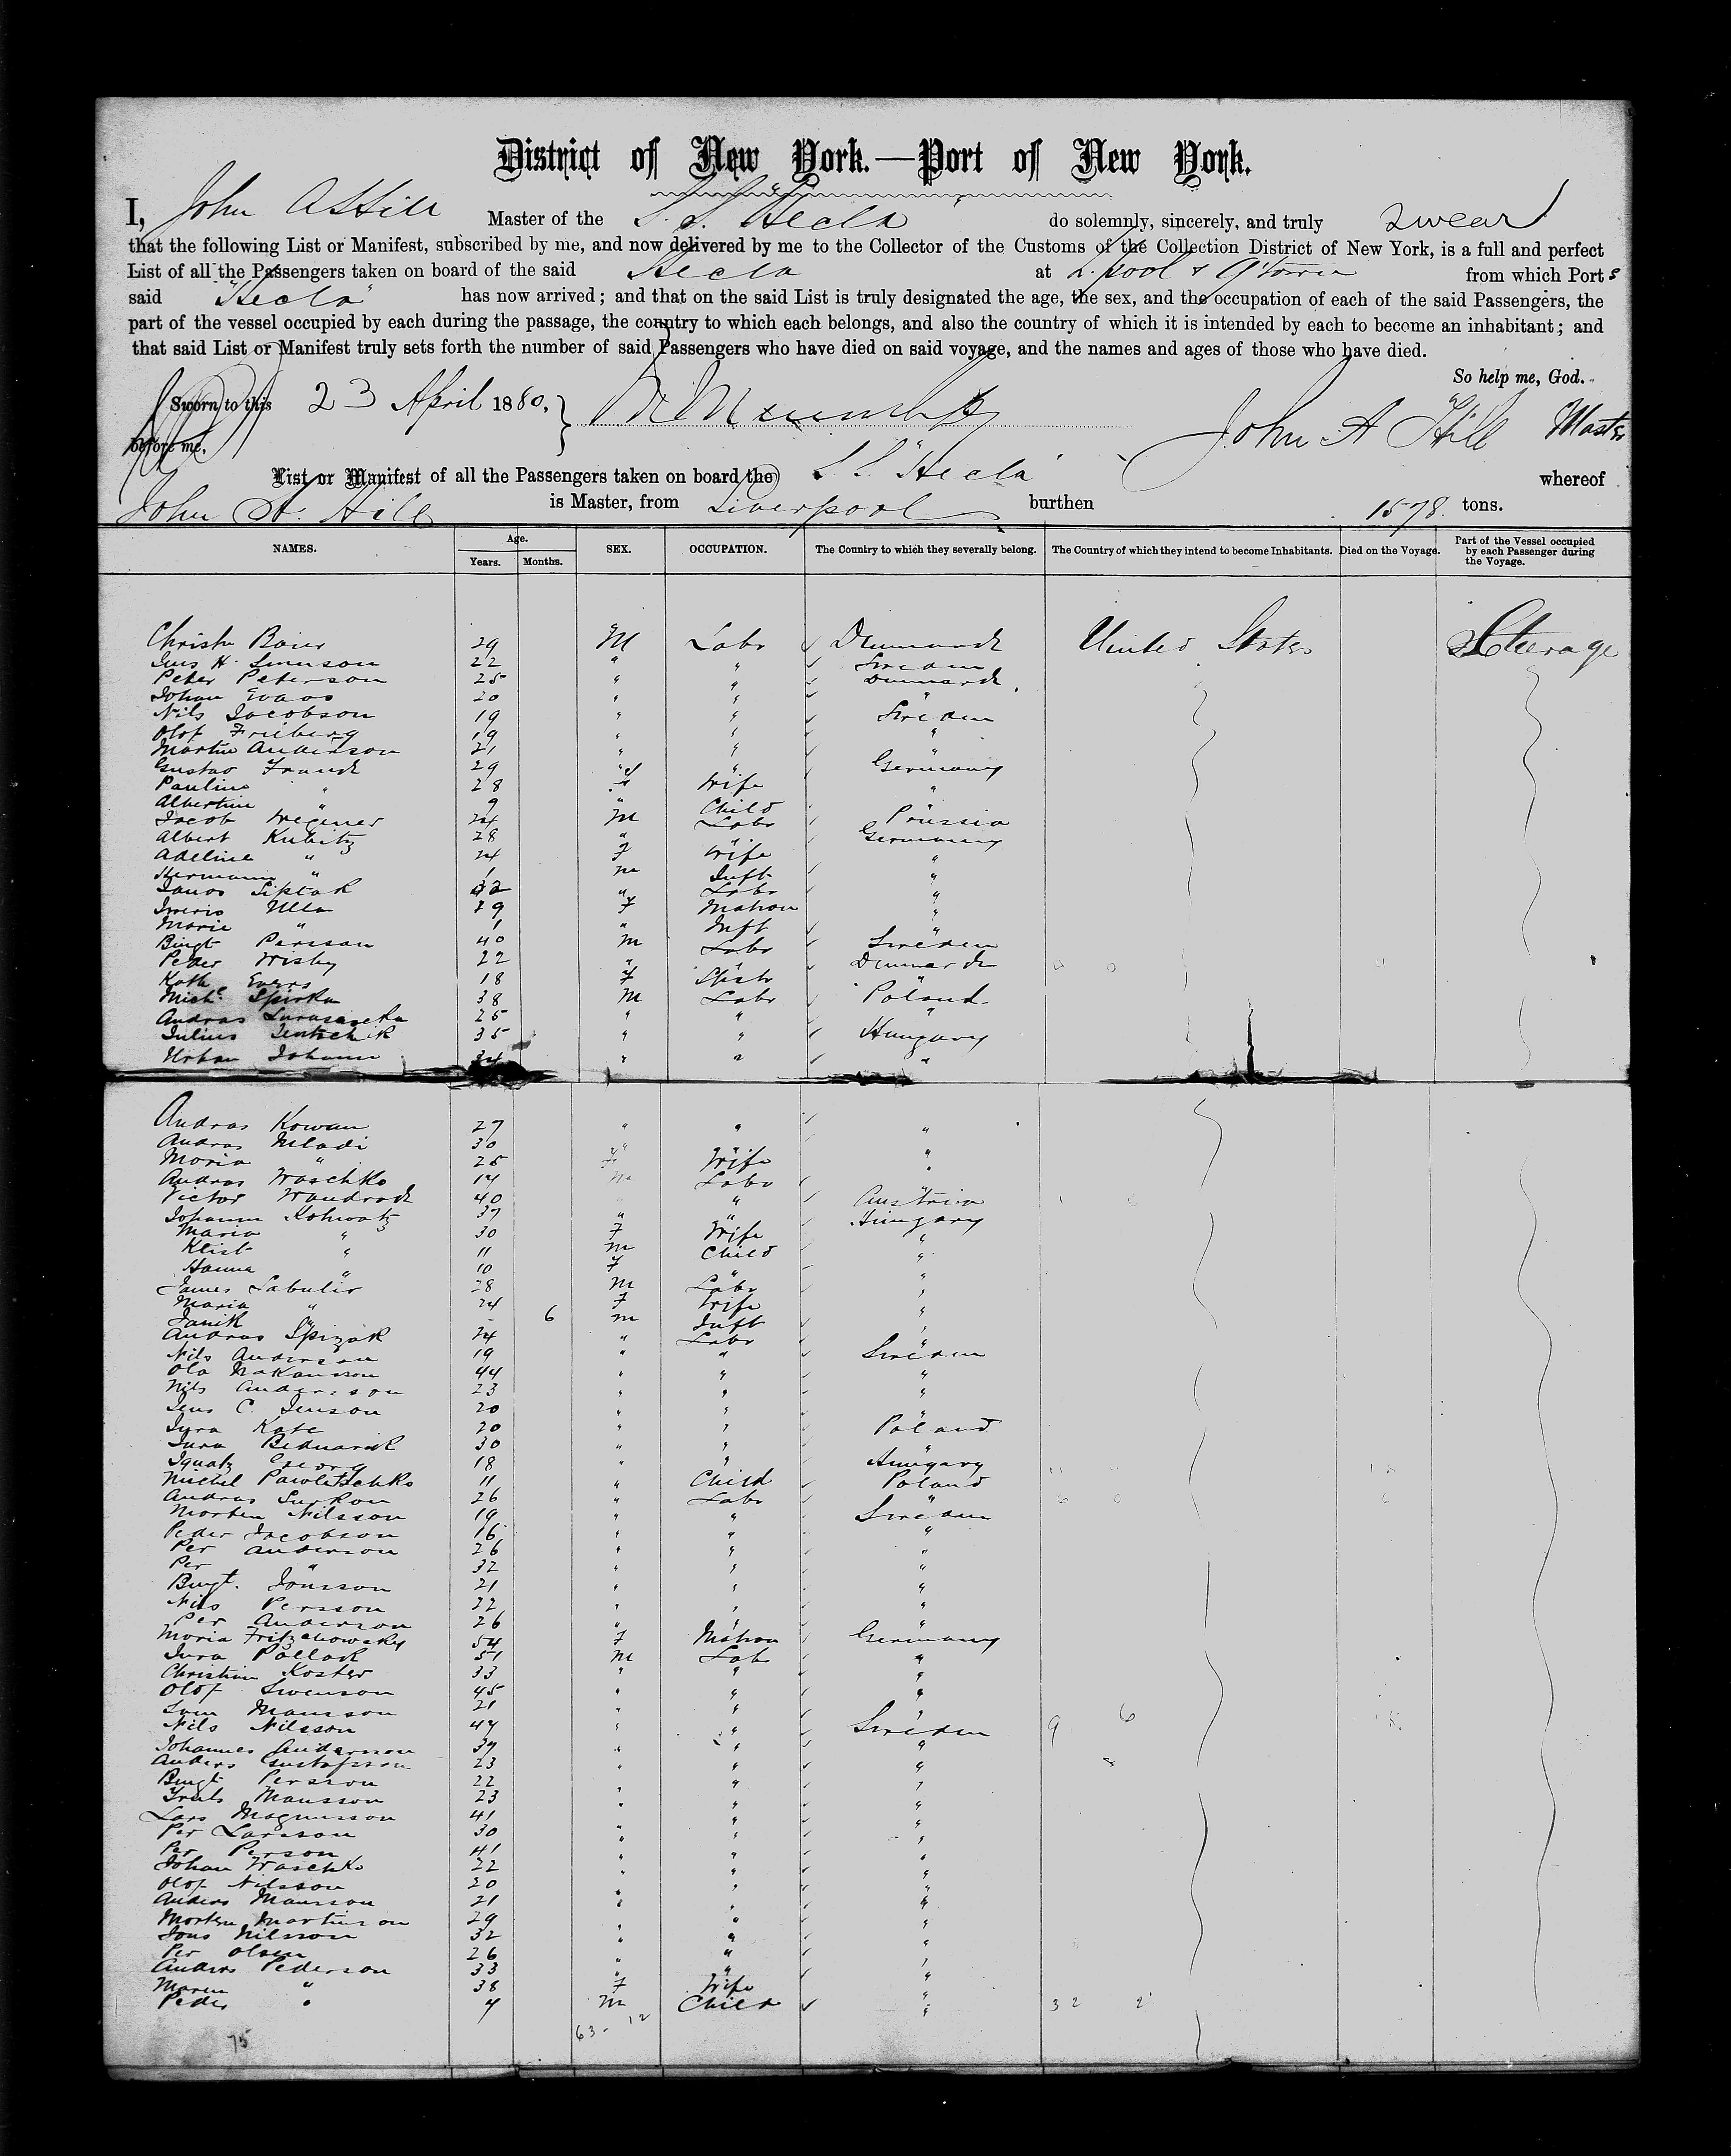 District of New York.—Port of New York.
I, John A Hill Master of the S.S. "Hecla" do solemnly, sincerely, and truly swear
that the following List or Manifest, subscribed by me, and now delivered by me to the Collector of the Customs of the Collection District of New York, is a full and perfect
List of all the Passengers taken on board of the said Hecla at L.pool & Q'town from which Ports
said "Hecla" has now arrived; and that on the said List is truly designated the age, the sex, and the occupation of each of the said Passengers, the
part of the vessel occupied by each during the passage, the country to which each belongs, and also the country of which it is intended by each to become an inhabitant; and
that said List or Manifest truly sets forth the number of said Passengers who have died on said voyage, and the names and ages of those who have died.
So help me, God.
Sworn to this 23 April 1880, John A Hill Master
before me.
List or Manifest of all the Passengers taken on board the S.S. "Hecla" whereof
John A. Hill is Master, from Liverpool burthen 1578 tons.
NAMES. Age. Years. Months. SEX. OCCUPATION. The Country to which they severally belong. The Country of which they intend to become Inhabitants. Died on the Voyage. Part of the Vessel occupied by each Passenger during the Voyage.
29 M Labr Denmark United States Steerage
22 " " Sweden
Peter Peterson 25 " " Denmark
Johan 20 " " "
Nils Jacobson 19 " " Sweden
Olof Frieberg 19 " " "
Martin Anderson 21 " " "
Gustav Franck 29 " " Germany
Pauline " 28 F Wife "
Albertine " 9 " Child "
Jacob Wegner 24 M Labr Prussia
Albert Kubitz 28 " " Germany
Adeline " 24 F Wife "
Hermann " 1 M Inft "
Janos Liptak 42 " Labr "
Ulla 29 F Matron "
Marie " 1 " Inft "
Bengt Persson 40 M Labr Sweden
Peder Wisby 22 " " Denmark
Kath Evers 18 F "
Michl Spirka 38 M Labr Poland
Andras 25 " " "
Julius 35 " " Hungary
Urban Johann 34 " " "
Andras Kowan 27 " " "
Andras Mladi 30 " " "
Maria " 25 F Wife "
Andras Waschko 14 M Labr "
Victor Wandrack 40 " " Austria
Johann Kohwatz 37 " " Hungary
Maria " 30 F Wife "
" 11 M Child "
Hanna " 10 F " "
James Labulis 28 M Labr "
Maria " 24 F Wife "
Janik " - 6 M Inft "
Andras Spizak 24 " Labr "
Nils Anderson 19 " " Sweden
Ola Hakansson 44 " " "
Nils Andersson 23 " " "
Jens C. Jenson 20 " " "
Jura Kate 20 " " Poland
Jura Bednarik 30 " " "
Ignatz Georg 18 " " Hungary
Michel Pawletschko 11 " Child Poland
Andras Surkon 26 " Labr "
Morten Nilsson 19 " " Sweden
Peder Jacobson 16 " " "
Per Anderson 26 " " "
Per " 32 " " "
Bengt. Jönsson 21 " " "
Nils Persson 22 " " "
Per Anderson 26 " " "
Maria 54 F Matron Germany
Jura Pollack 51 M Lab "
Christian Koster 33 " " "
Olof Swenson 45 " " "
Sven Mansson 21 " " "
Nils Nilsson 47 " " Sweden
Johannes Andersson 37 " " "
Anders Gustafsson 23 " " "
Bengt Persson 22 " " "
Truls Mansson 23 " " "
Lars Magnusson 41 " " "
Per Larsson 30 " " "
Per Person 41 " " "
Johan Waschko 22 " " "
Olof Nilsson 20 " " "
Anders Mansson 21 " " "
Morten Martinson 29 " " "
Jons Nilsson 32 " " "
Per Olsen 26 " " "
Anders Pederson 33 " " "
Maren " 38 F Wife "
Peder " 7 M Child "
75 63 - 12